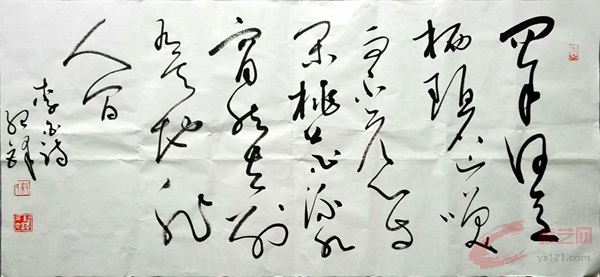 问余何意
栖碧山笑
而不答心自
闲桃花流水
窅然去别
有天地非
人间
李白诗
艺网
ya121.com